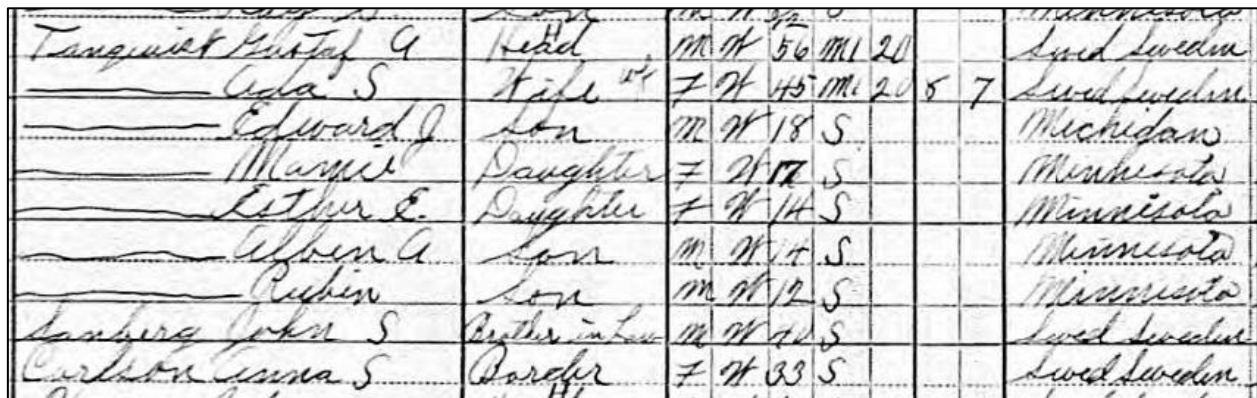 Son M W S Minnesota
Tanquist Gustaf A Head M W 56 M1 20 Swed Swedin
Ada S Wife F W 45 M1 20 8 7 Swed Swedin
Edward J Son M W 18 S Michigan
Mamie Daughter F W 17 S Minnesota
Esther E. Daughter F W 14 S Minnesota
Alben A Son M W 14 S Minnesota
Rubin Son M W 12 S Minnesota
Sanberg John S Brother in Law M W 40 S Swed Swedin
Carlson Anna S Border F W 33 S Swed Swedin